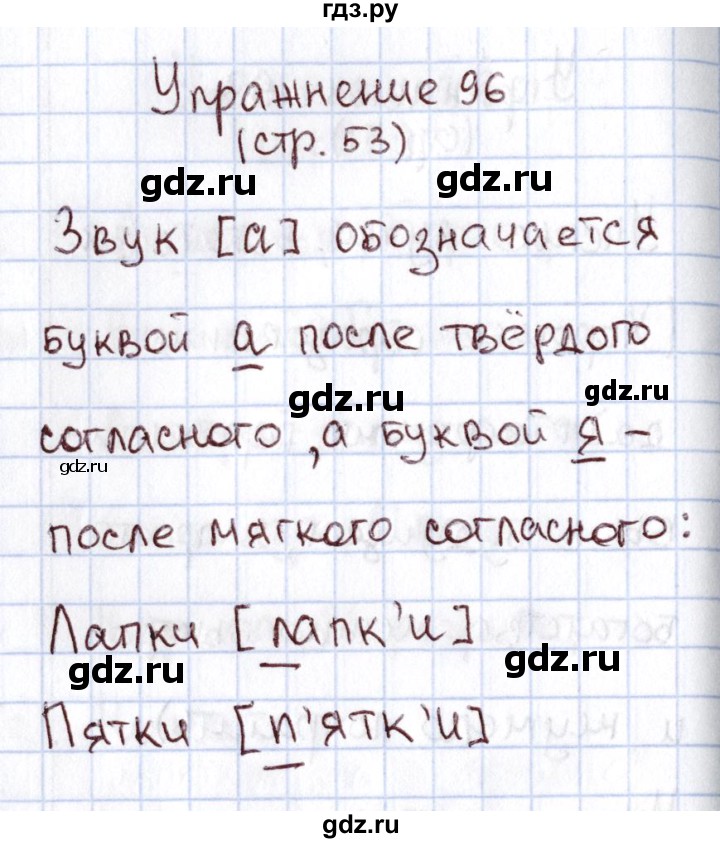 гдз.ру
Упражнение 96
(стр. 53)
gdz.ru gdz.ru
Звук [а] обозначается
буквой а после твёрдого
gdz.ru gdz.ru
согласного, а буквой я -
gdz.ru
после мягкого согласного:
Лапки [лапк'и]
gdz.ru gdz.ru
Пятки [п'ятк'и]
gdz.ru